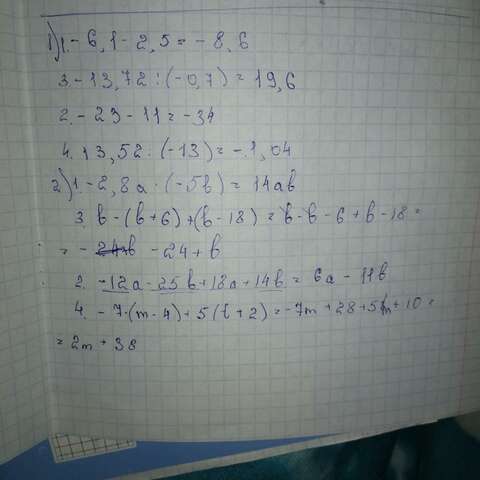 1) 1. - 6,1 - 2,5 = - 8,6
3. - 13,72 : (-0,7) = 19,6
2. - 23 - 11 = -34
4. 13,52 : (-13) = -1,04
2) 1. - 2,8a : (-5b) = 14ab
3. b - (b + 6) + (b - 18) = b - b - 6 + b - 18 =
= - 24 + b
2. -12a - 25b + 18a + 14b = 6a - 11b
4. - 7·(m - 4) + 5(l + 2) = -7m + 28 + 5m + 10 =
= 2m + 38